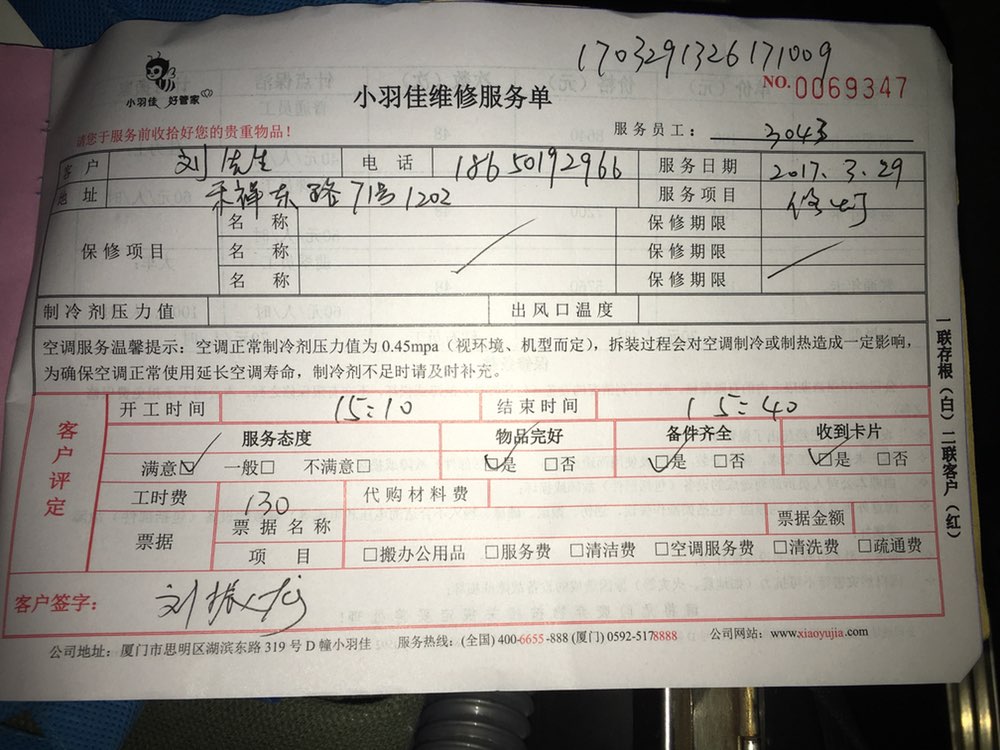 1703291326171009
小羽佳 好管家
NO.0069347
小羽佳维修服务单
请您于服务前收拾好您的贵重物品!
服务员工: 3043
客户 刘先生 电话 18650192966 服务日期 2017.3.29
地址 禾祥东路71号1202 服务项目
保修项目 名称 保修期限
名称 保修期限
名称 保修期限
制冷剂压力值 出风口温度
空调服务温馨提示:空调正常制冷剂压力值为0.45mpa(视环境、机型而定),拆装过程会对空调制冷或制热造成一定影响,
为确保空调正常使用延长空调寿命,制冷剂不足时请及时补充。
客户评定
开工时间 15:10 结束时间 15:40
服务态度 物品完好 备件齐全 收到卡片
满意☑ 一般□ 不满意□ ☑是 □否 ☑是 □否 ☑是 □否
工时费 130 代购材料费
票据 票据名称 票据金额
项目 □搬办公用品 □服务费 □清洁费 □空调服务费 □清洗费 □疏通费
客户签字: 刘振
公司地址:厦门市思明区湖滨东路319号D幢小羽佳 服务热线:(全国)400-6655-888 (厦门)0592-5178888 公司网站:www.xiaoyujia.com
一联存根(白)二联客户(红)